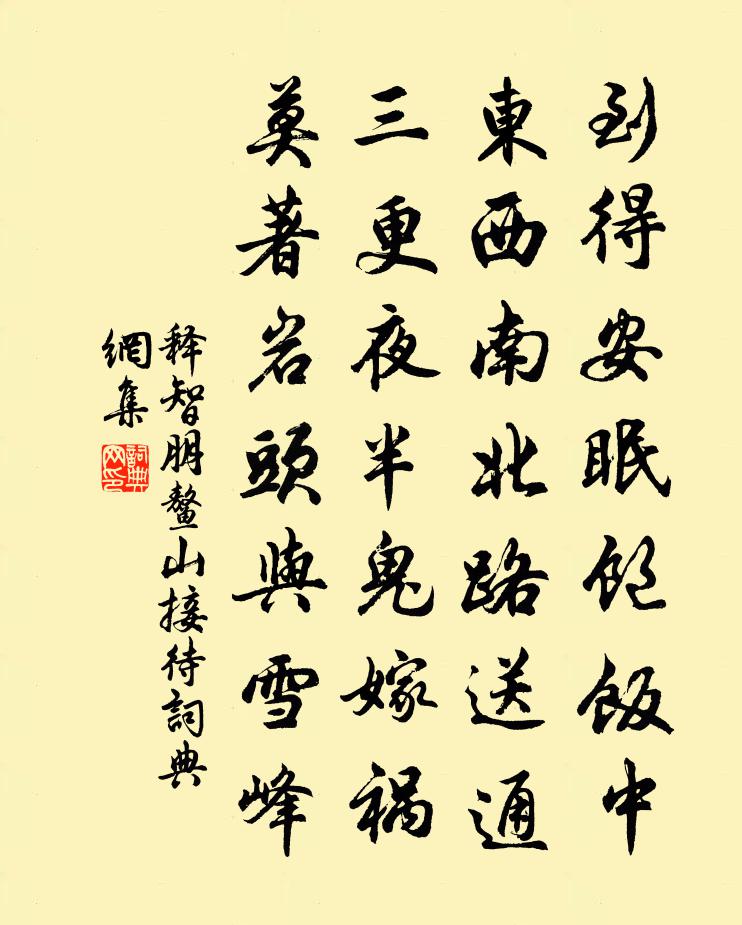 到得安眠飽飯中
東西南北路送通
三更夜半鬼嫁禍
莫著岩頭與雪峰
释智朋鳌山接待詞典
網集
詞典
网印